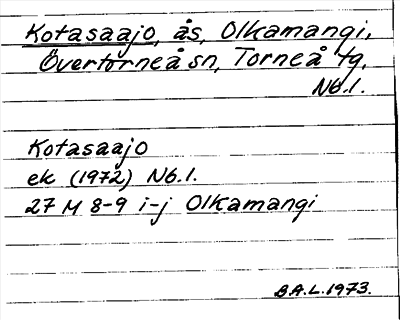 Kotasaajo, ås, Olkamangi,
Övertorneå sn, Torneå tg,
Nb.l.
Kotasaajo
ek (1972) Nb.l.
27 M 8-9 i-j Olkamangi
B.A.L. 1973.